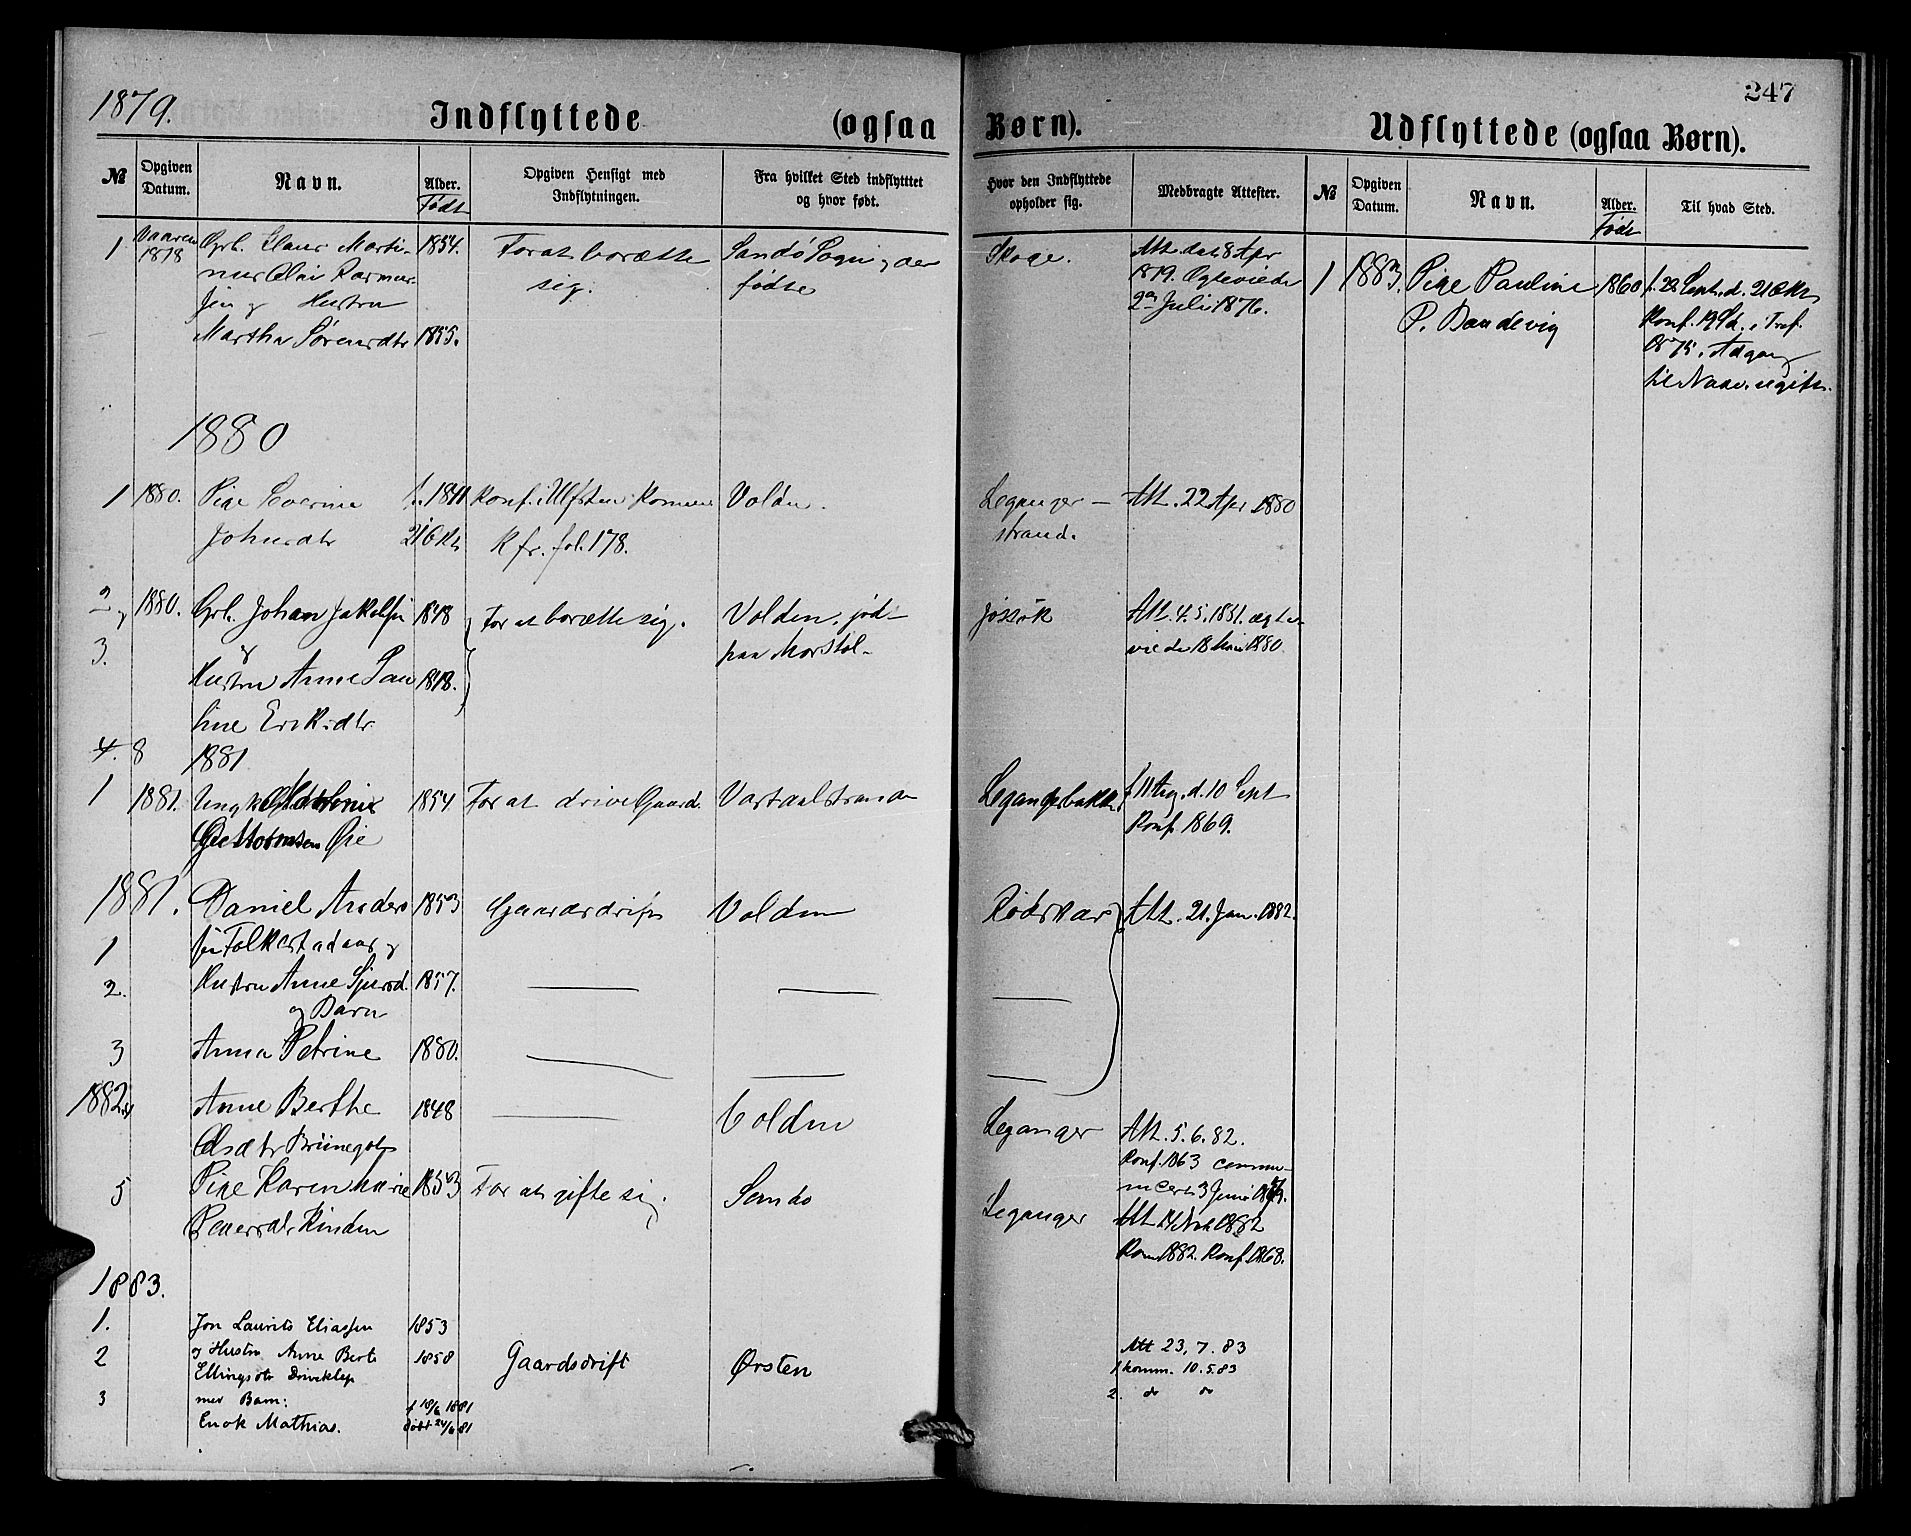 247
1879.
Indflyttede (ogsaa Børn).
Udflyttede (ogsaa Børn).
№
Opgiven Datum.
Navn.
Alder.
Født
Opgiven Hensigt med Indflytningen.
Fra hvilket Sted indflytttet og hvor født.
Hvor den Indflyttede opholder sig.
Medbragte Attester.
№
Opgiven Datum.
Navn.
Alder.
Født
Til hvad Sted.
1 Vaaren 1854. For at borætte Sandö Sogn, der Skoge. Att. dat. 8 Apr
1878 sig. fødte 1879. Ægteviede
og Hustru 2den Juli 1876.
Martha Sörensdtr 1855.
1 1883. Pige Pauline 1860 f. 22 Sept. d. 21 Okt
P. Dandevig Konf.
1875. Adgang
til Nadv. ugift.
1880
1 1880. Pige Severine Konf. i Ulfsten Volden. Leganger-
Johnsdtr 21 Okt Kfr. fol. 178. strand.
Att. 22 Apr 1880
2 1880. Johan Jakobsen 1848 For at borætte sig. Volden, født Jøssök Att. 4.5.1881. ægte-
3. og paa viede 18 Mai 1880
Hustru Anne Pau 1848.
line Eriksdtr
4. 8 1881
1 1881. Ungk 1854 For at drive Gaard. Vartdalstranden Legangerbakke f 11 Aug. d. 10 Sept
Øie Konf. 1869.
1881. Daniel Anders 1853 Gaardsdrift Volden Rødskar Att. 21. Jan. 1882.
1 sen Folkestadaas og
2. Hustru Anne Sjursd. 1857.
og Barn
3 Anna Petrine 1880.
1882. Anne Berthe 1848 Volden Leganger Att. 5.6.82.
Konf. 1863 commu-
nicert 3 Juni
5 Pige Karen Marie 1853 For at gifte sig. Sandö Leganger Att 1882
Konf. 1868.
1883.
1. Jon Laurits Eliassen 1853
2 og Hustru Anne Berte 1858 Gaardsdrift Ørsten Att 23, 7. 83
Ellingsdtr Driveklep 1 komm. 10.5.83
3 med Barn: 2. do do
f 18/6 1881
Enok Mathias. døbt 24/6 81